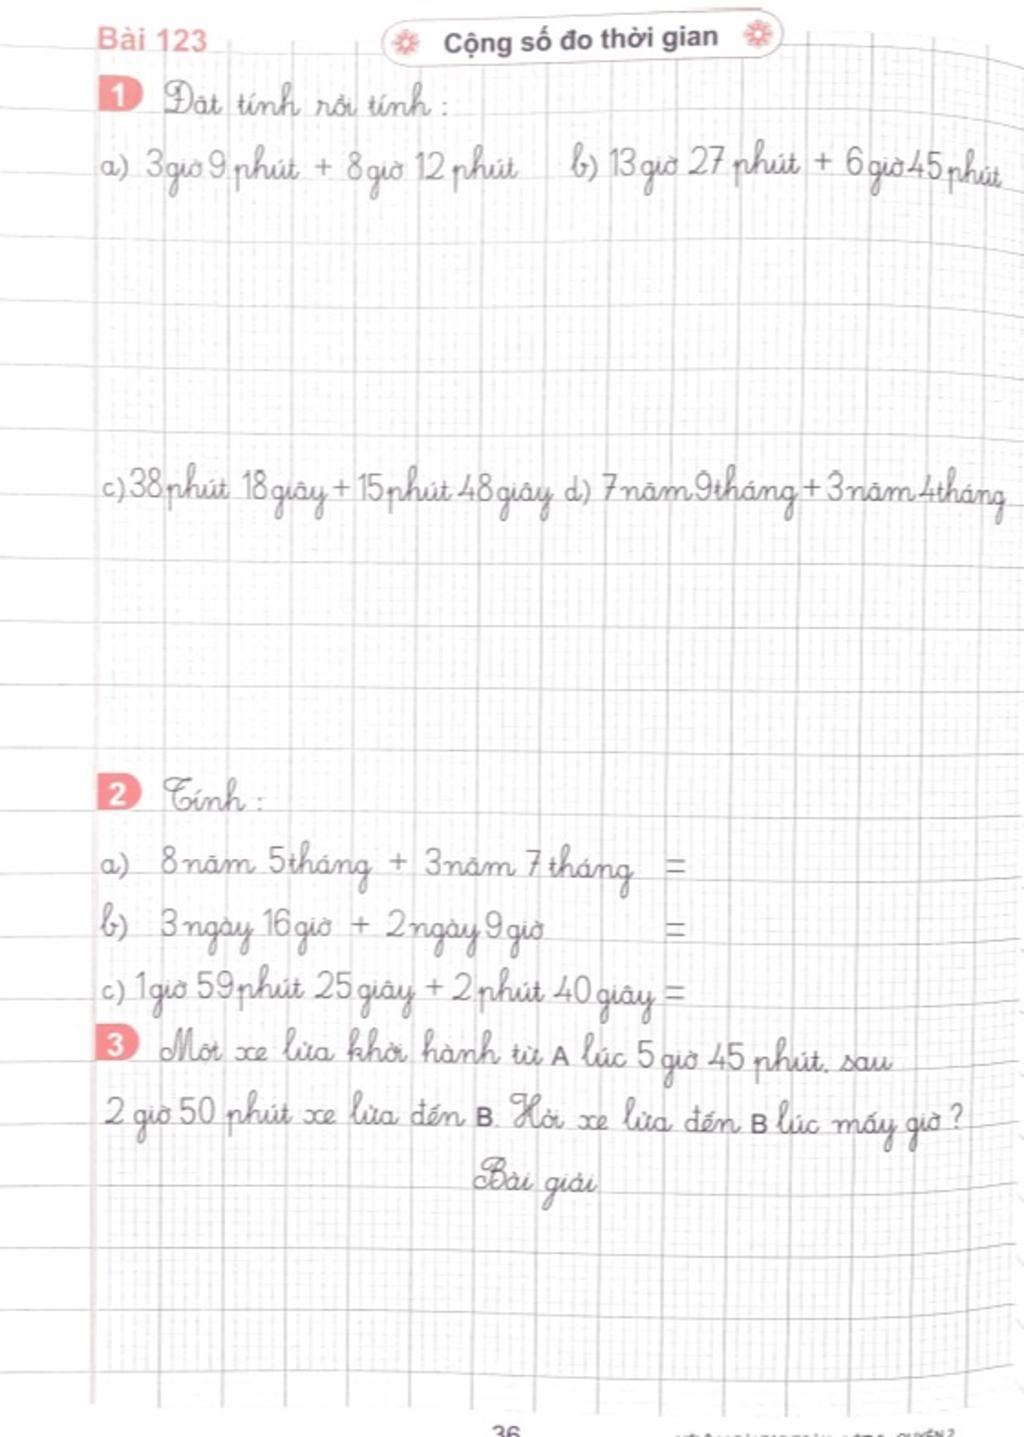 Bài 123
Cộng số đo thời gian
1 Đặt tính rồi tính :
a) 3 giờ 9 phút + 8 giờ 12 phút b) 13 giờ 27 phút + 6 giờ 45 phút
c) 38 phút 18 giây + 15 phút 48 giây d) 7 năm 9 tháng + 3 năm 4 tháng
2 Tính :
a) 8 năm 5 tháng + 3 năm 7 tháng =
b) 3 ngày 16 giờ + 2 ngày 9 giờ =
c) 1 giờ 59 phút 25 giây + 2 phút 40 giây =
3 Một xe lửa khởi hành từ A lúc 5 giờ 45 phút, sau
2 giờ 50 phút xe lửa đến B. Hỏi xe lửa đến B lúc mấy giờ ?
Bài giải
36
QUYỂN 2